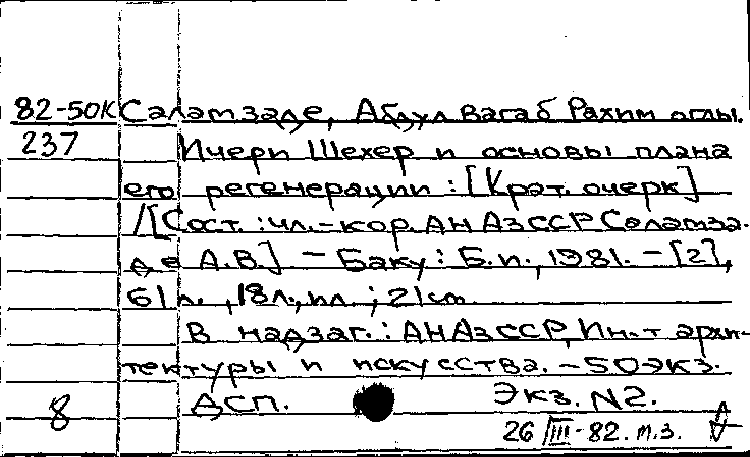 82-50К Саламзаде, Абдул Вагаб Рахим оглы.
237 Ичери Шехер и основы плана
его регенерации : [Крат. очерк]
/[Сост. : чл.-кор. АН АзССР Саламза-
де А.В.] – Баку : Б.и., 1981. – [2],
61 л., 18 л., ил. ; 21 см
В надзаг. : АН АзССР, Ин-т архи-
тектуры и искусства. – 50 экз.
8 ДСП. Экз. N2.
26/III-82. т.з.